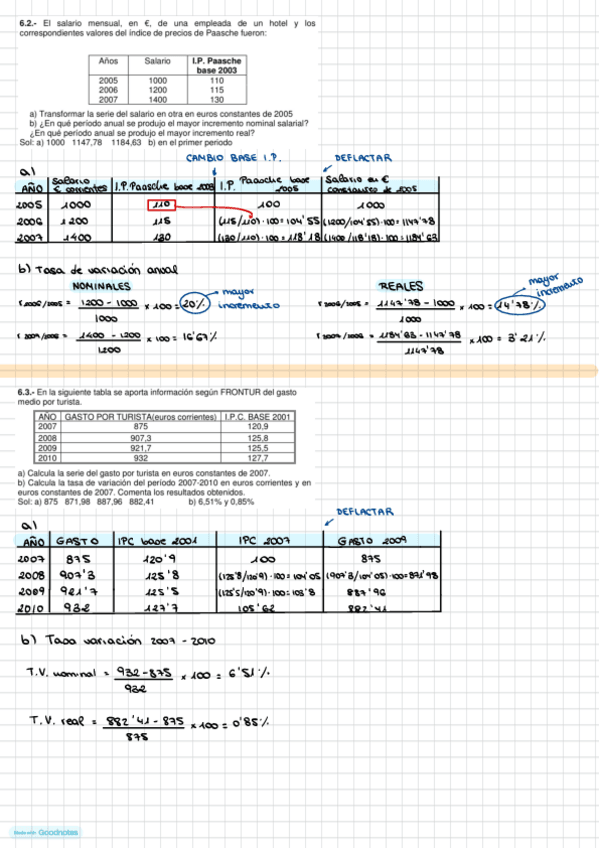 6.2.- El salario mensual, en €, de una empleada de un hotel y los
correspondientes valores del índice de precios de Paasche fueron:
Años Salario I.P. Paasche base 2003
2005 1000 110
2006 1200 115
2007 1400 130
a) Transformar la serie del salario en otra en euros constantes de 2005
b) ¿En qué período anual se produjo el mayor incremento nominal salarial?
¿En qué período anual se produjo el mayor incremento real?
Sol: a) 1000 1147,78 1184,63 b) en el primer periodo
CAMBIO BASE I.P. DEFLACTAR
a)
AÑO Salario € corrientes I.P. Paasche base 2003 I.P. Paasche base 2005 Salario en € constantes de 2005
2005 1000 110 100 1000
2006 1200 115 (115/110)·100=104'55 (1200/104'55)·100=1147'78
2007 1400 130 (130/110)·100=118'18 (1400/118'18)·100=1184'63
b) Tasa de variación anual
NOMINALES REALES
r 2006/2005 = 1200 - 1000 / 1000 × 100 = 20% mayor incremento
r 2006/2005 = 1147'78 - 1000 / 1000 × 100 = 14'78% mayor incremento
r 2007/2006 = 1400 - 1200 / 1200 × 100 = 16'67%
r 2007/2006 = 1184'63 - 1147'78 / 1147'78 × 100 = 3'21%
6.3.- En la siguiente tabla se aporta información según FRONTUR del gasto
medio por turista.
AÑO GASTO POR TURISTA(euros corrientes) I.P.C. BASE 2001
2007 875 120,9
2008 907,3 125,8
2009 921,7 125,5
2010 932 127,7
a) Calcula la serie del gasto por turista en euros constantes de 2007.
b) Calcula la tasa de variación del período 2007-2010 en euros corrientes y en
euros constantes de 2007. Comenta los resultados obtenidos.
Sol: a) 875 871,98 887,96 882,41 b) 6,51% y 0,85%
DEFLACTAR
a)
AÑO GASTO IPC base 2001 IPC 2007 GASTO 2009
2007 875 120'9 100 875
2008 907'3 125'8 (125'8/120'9)·100=104'05 (907'3/104'05)·100=871'98
2009 921'7 125'5 (125'5/120'9)·100=103'8 887'96
2010 932 127'7 105'62 882'41
b) Tasa variación 2007 - 2010
T.V. nominal = 932-875 / 932 × 100 = 6'51%
T.V. real = 882'41 - 875 / 875 × 100 = 0'85%
Made with Goodnotes